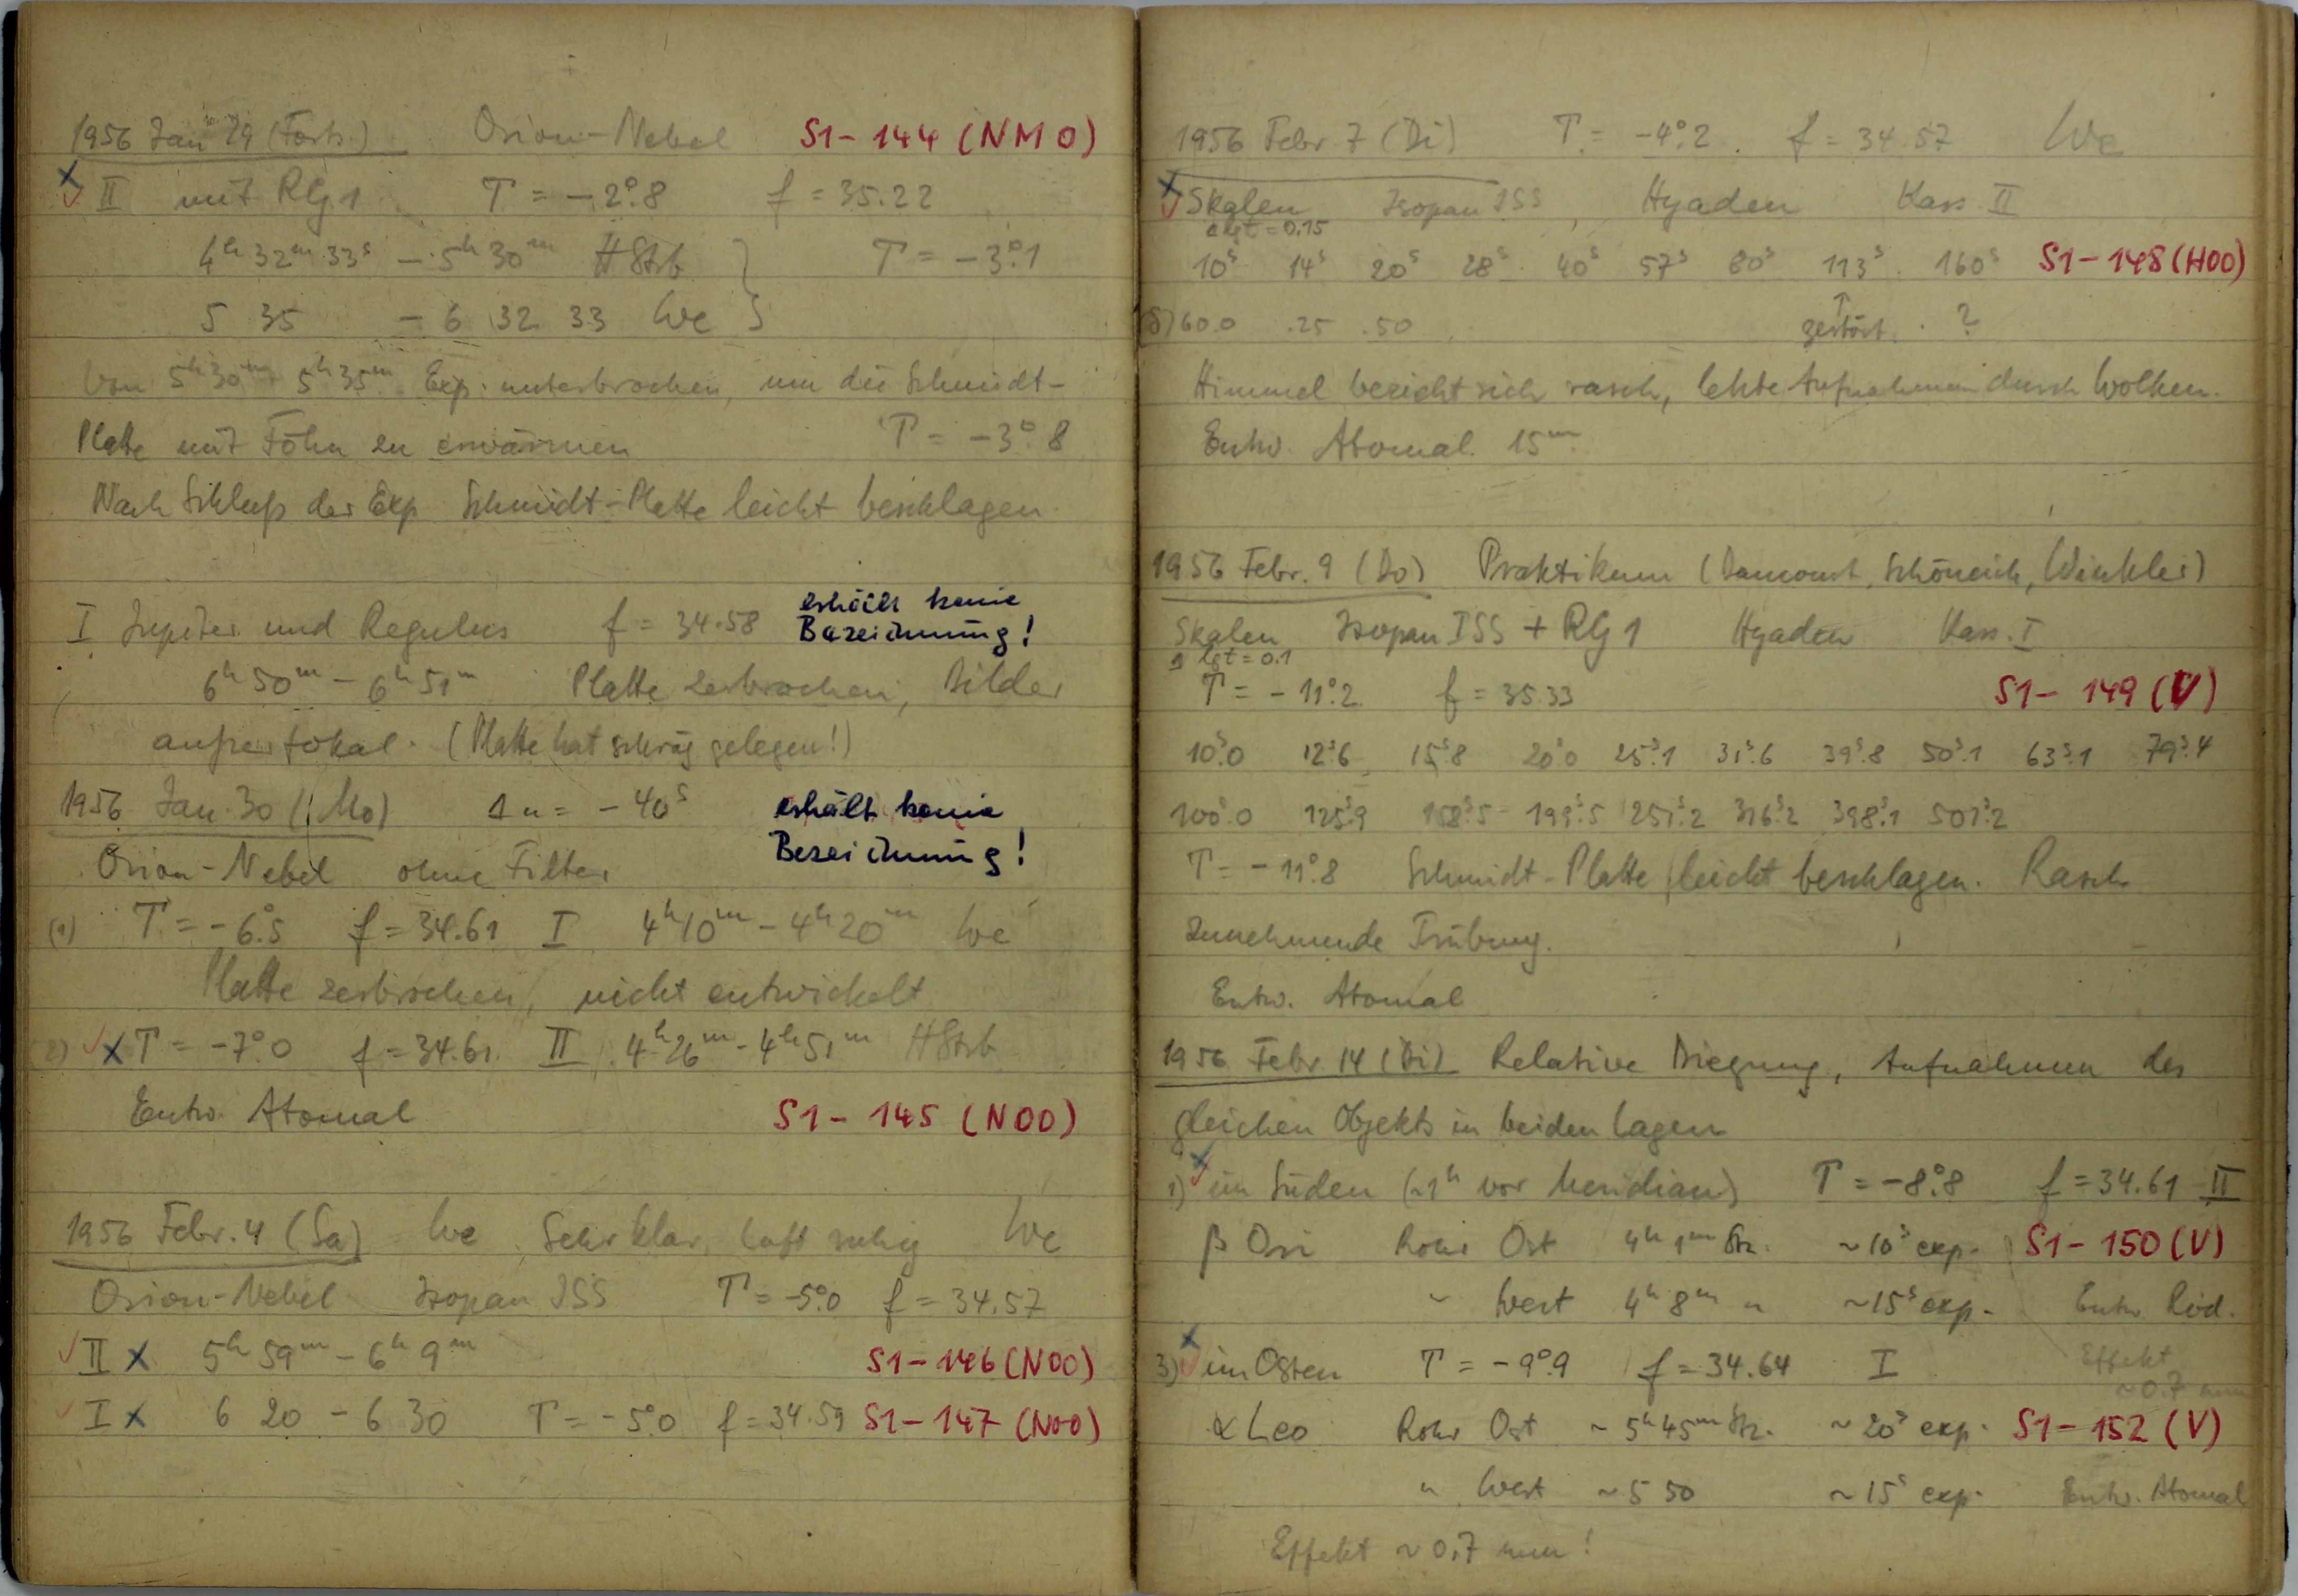 1956 Jan 29 (Forts.) Orion-Nebel S1-144 (NM0)
II mit RG1 T = -2°.8 f = 35.22
4h 32m 33s - 5h 30m HStrb T = -3°.1
5 35 - 6 32 33 We
Von 5h30m - 5h35m Exp. unterbrochen, um die Schmidt-
Platte mit Föhn zu erwärmen T = -3°.8
Nach Schluß der Exp Schmidt-Platte leicht beschlagen.
I Jupiter und Regulus f = 34.58 erhält keine
Bezeichnung!
6h 50m - 6h 51m Platte zerbrochen, Bilder
außerfokal. (Platte hat schräg gelegen!)
1956 Jan. 30 (Mo) Δu = -40s erhält keine
Bezeichnung!
Orion-Nebel ohne Filter
(1) T = -6°.5 f = 34.61 I 4h10m - 4h20m We
Platte zerbrochen, nicht entwickelt
2) x T = -7°.0 f = 34.61. II 4h26m - 4h51m HStrb
Entw. Atomal S1-145 (N00)
1956 Febr. 4 (Sa) We Sehr klar, Luft ruhig We
Orion-Nebel Isopan ISS T = -5°.0 f = 34.57
II x 5h 59m - 6h 9m S1-146 (N00)
I x 6 20 - 6 30 T = -5°.0 f = 34.59 S1-147 (N00)
1956 Febr. 7 (Di) T = -4°.2. f = 34.57 We
x Skalen Isopan ISS, Hyaden Kass. II
Δ lg t = 0.15
10s 14s 20s 28s 40s 57s 80s 113s 160s S1-148 (H00)
60.0 .25 .50 ↑ zerstört. ?
Himmel bezieht sich rasch, letzte Aufnahmen durch Wolken.
Entw. Atomal 15m.
1956 Febr. 9 (Do) Praktikum (Schöneich, Winkler)
Skalen Isopan ISS + RG1 Hyaden Kass. I
Δ lg t = 0.1
T = -11°.2 f = 35.33 S1-149 (V)
10s.0 12s.6 15s.8 20s.0 25s.1 31s.6 39s.8 50s.1 63s.1 79s.4
100s.0 125s.9 158s.5 199s.5 251s.2 316s.2 398s.1 501s.2
T = -11°.8 Schmidt-Platte leicht beschlagen. Rasch
zunehmende Trübung.
Entw. Atomal
1956 Febr 14 (Di) Relative Biegung, Aufnahmen des
gleichen Objekts in beiden Lagen
1) im Süden (~1h vor Meridian) T = -8°.8 f = 34.61 II
β Ori Rohr Ost 4h 1m Stz. ~10s exp. S1-150 (V)
" West 4h 8m " ~15s exp. Entw. Rod.
3) im Osten T = -9°.9 f = 34.64 I Effekt
~0.7 mm
α Leo Rohr Ost ~5h45m Stz. ~20s exp. S1-152 (V)
" West ~5 50 ~15s exp. Entw. Atomal
Effekt ~0.7 mm!